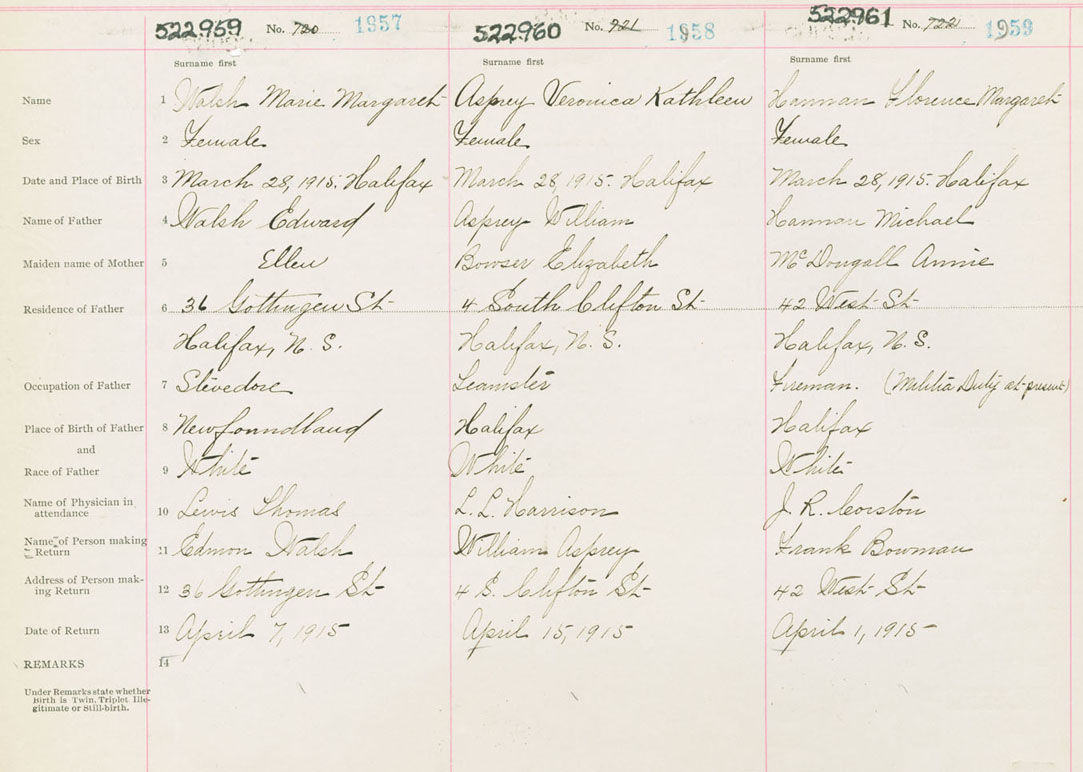 522959 No. 720 1957 522960 No. 921 1958 522961 No. 722 1959
Surname first Surname first Surname first
Name 1 Walsh Marie Margaret Asprey Veronica Kathleen Hannan Florence Margaret
Sex 2 Female Female Female
Date and Place of Birth 3 March 28, 1915. Halifax March 28, 1915. Halifax March 28, 1915. Halifax
Name of Father 4 Walsh Edward Asprey William Hannan Michael
Maiden name of Mother 5 Ellen Bowser Elizabeth McDougall Annie
Residence of Father 6 36 Gottingen St 4 South Clifton St 42 West St
Halifax, N. S. Halifax, N. S. Halifax, N. S.
Occupation of Father 7 Stevedore Teamster Fireman. (Militia Duty at present)
Place of Birth of Father 8 Newfoundland Halifax Halifax
and
Race of Father 9 White White White
Name of Physician in
attendance 10 Lewis Thomas L. L. Harrison J. R. Corston
Name of Person making
Return 11 Edmon Walsh William Asprey Frank Bowman
Address of Person mak-
ing Return 12 36 Gottingen St 4 S. Clifton St 42 West St
Date of Return 13 April 7, 1915 April 15, 1915 April 1, 1915
REMARKS 14
Under Remarks state whether
Birth is Twin, Triplet Ille-
gitimate or Still-birth.